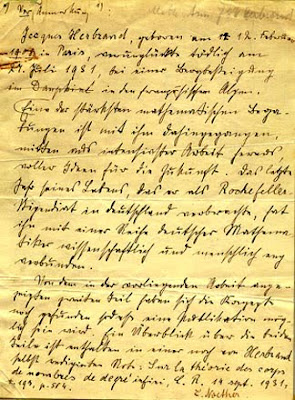 Vor Anmerkung
Jacques Herbrand, geboren am 12. Februar
in Paris, verunglückte tödlich am
27. Juli 1931, bei einer Bergbesteigung
im Dauphiné in den französischen Alpen.
Eine der stärksten mathematischen Bega-
bungen ist mit ihm dahingegangen,
mitten aus intensivster Arbeit heraus
voller Ideen für die Zukunft. Das letzte
Jahr seines Lebens, das er als Rockefeller-
Stipendiat in Deutschland verbrachte, hat
ihn mit einer Reihe deutscher Mathema-
tiker wissenschaftlich und menschlich eng
verbunden.
Von dem in der vorliegenden Arbeit ange-
zeigten zweiten Teil haben sich die Konzepte
noch gefunden sodass eine Publikation mög-
lich sein wird. Ein Überblick über die beiden
Teile ist enthalten in einer noch von Herbrand
selbst redigierten Note: Sur la théorie des corps
de nombres de degré infini, C. R. 14 sept. 1931,
t. 193, p. 504.
E. Noether